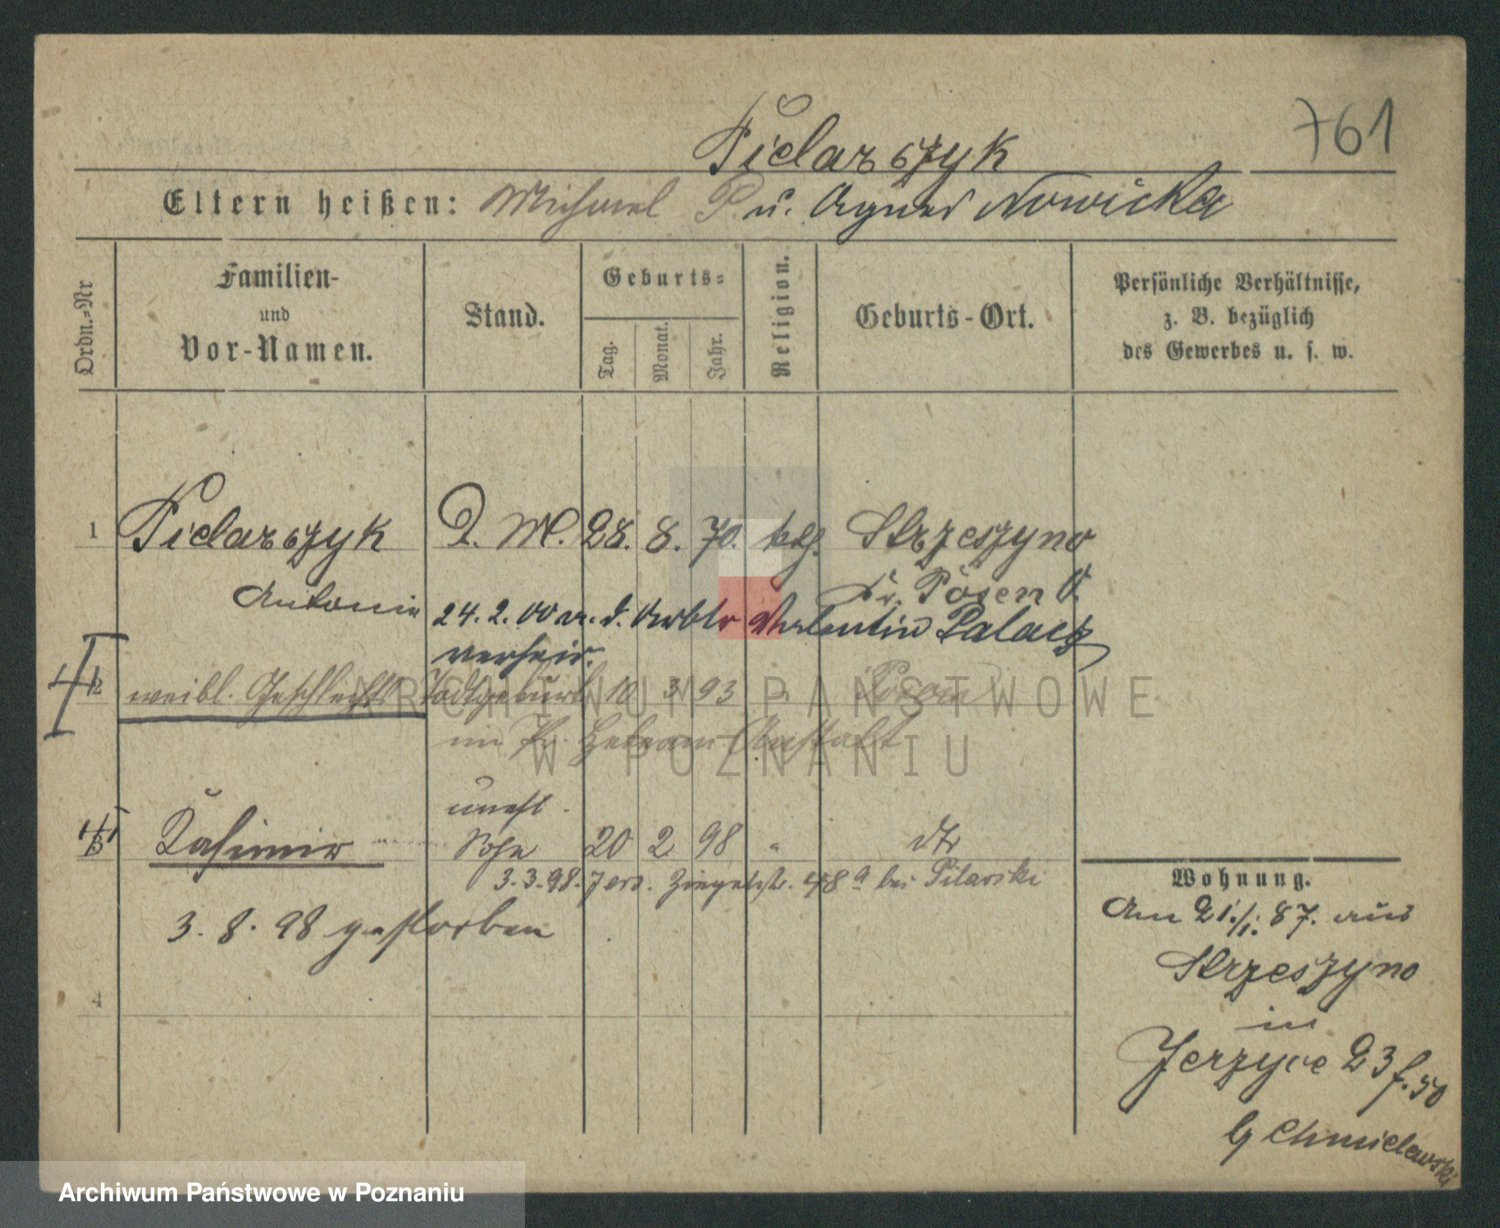 761
Pielarczyk
Eltern heißen: Michael P. u. Agnes Nowicka
Ordn.-Nr
Familien- und Vor-Namen.
Stand.
Geburts-
Tag.
Monat.
Jahr.
Religion.
Geburts-Ort.
Persönliche Verhältnisse,
z. B. bezüglich
des Gewerbes u. s. w.
1 Pielarczyk D. M. 28. 8. 70. kth. Strzeszyno
Antonie Kr. Posen O.
24. 2. 00 m. d. Arbtr Valentin Palacz
verheir.
2 weibl. Geschlechts Todtgeburt 10 3 93 " Posen
im Pr. Hebeam. Anstalt
unehl.
3 Kasimir Sohn 20 2 98 " dto
3.3.98. Jers. 48a bei Pilarski
3. 8. 98 gestorben
4
Wohnung.
Am 21./1. 87. aus
Strzeszyno
in
Jerzyce 23 f. 50
b/ Chmielewski
ARCHIWUM PAŃSTWOWE
W POZNANIU
Archiwum Państwowe w Poznaniu